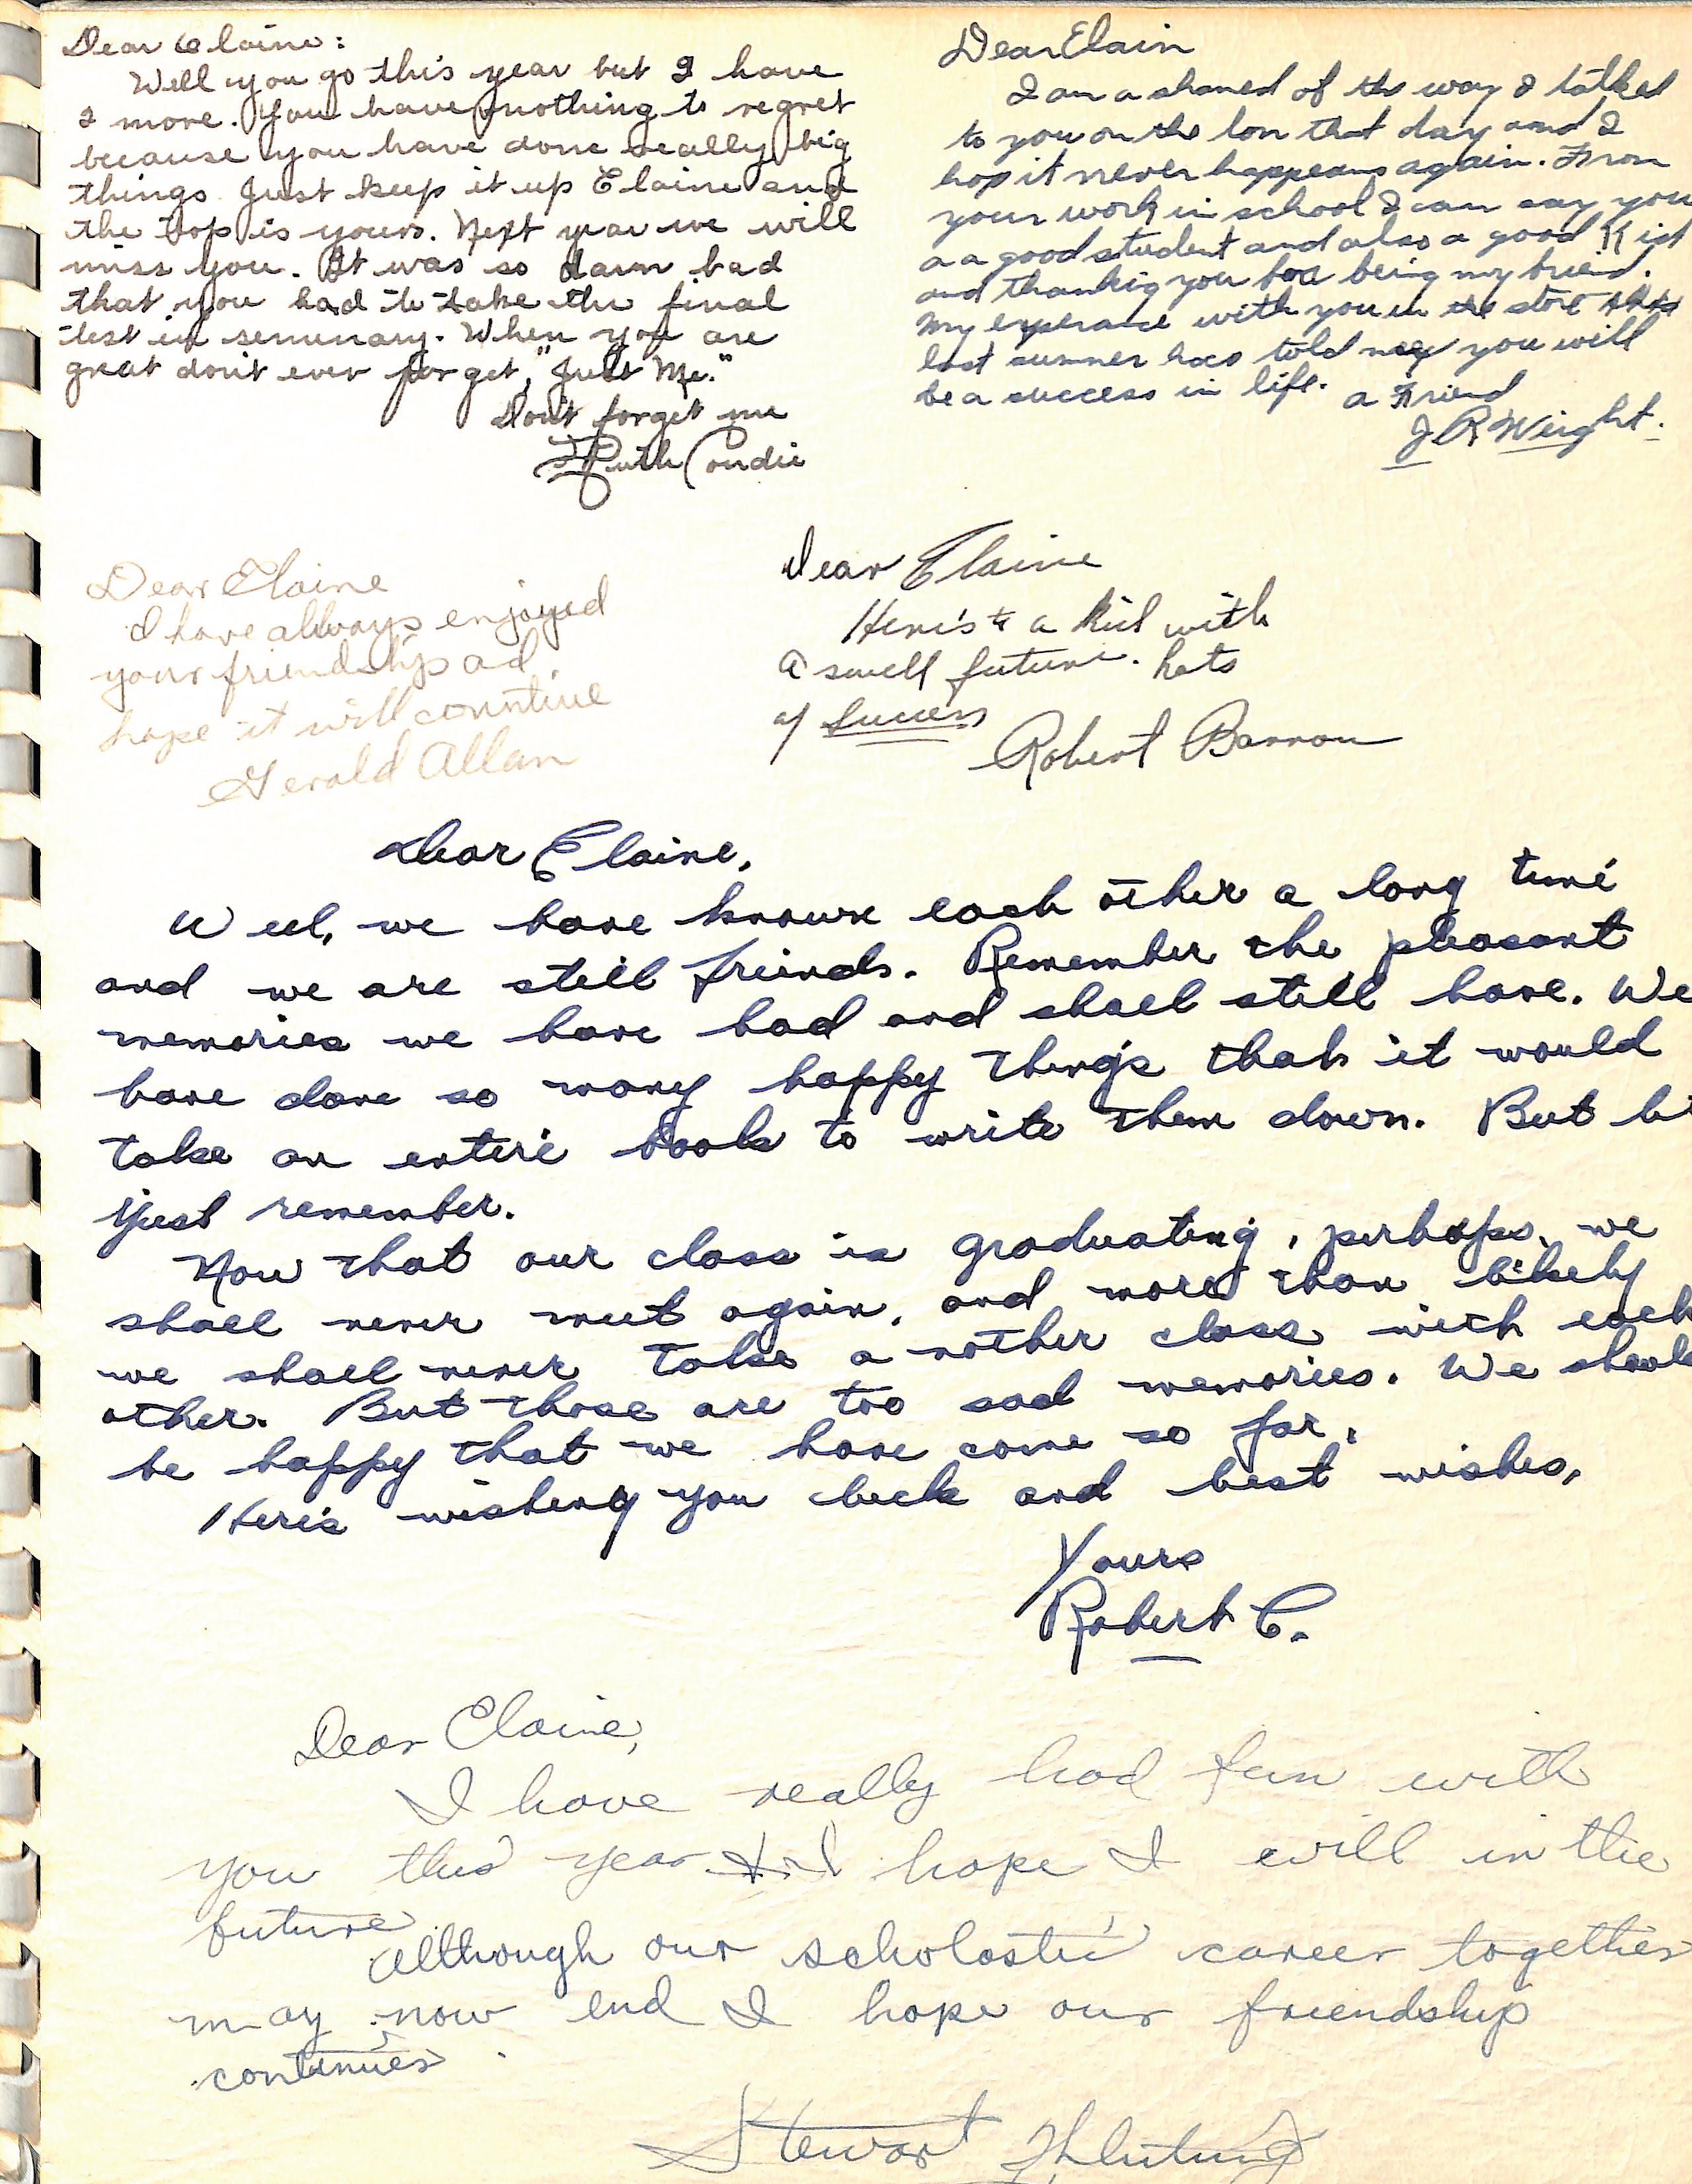 Dear Elaine:
Well you go this year but I have
1 more. You have nothing to regret
because you have done really big
things. Just keep it up Elaine and
the top is yours. Next year we will
miss you. It was so darn bad
that you had to take the final
test in seminary. When you are
great don't ever forget, "Just Me."
Don't forget me
Ruth Condie
Dear Elain
I am a shamed of the way I talked
to you on the lon that day and I
hop it never happeans again. From
your work in school I can say you
a a good student and also a good
and thankig you for being my friend.
My experance with you in the store
last summer has told me you will
be a success in life. a Friend
J R Weight.
Dear Elaine
I have allways enjoyed
your friendship ad
hope it will conntiue
Gerald Allan
Dear Elaine
Here's to a kid with
a swell future. lots
of Success
Robert Barron
Dear Elaine,
Well, we have known each other a long time
and we are still freinds. Remember the pleasant
memories we have had and shall still have. We
have done so many happy things that it would
take an entire book to write them down. But
just remember.
Now that our class is graduating, perhaps, we
shall never meet again, and more than likely
we shall never take a nother class with each
other. But those are too sad memories. We should
be happy that we have come so far.
Here's wishing you luck and best wishes,
Yours
Robert C.
Dear Elaine,
I have really had fun with
you this year hope I will in the
future.
Although our scholastic career together
may now end I hope our friendship
continues.
Stewart